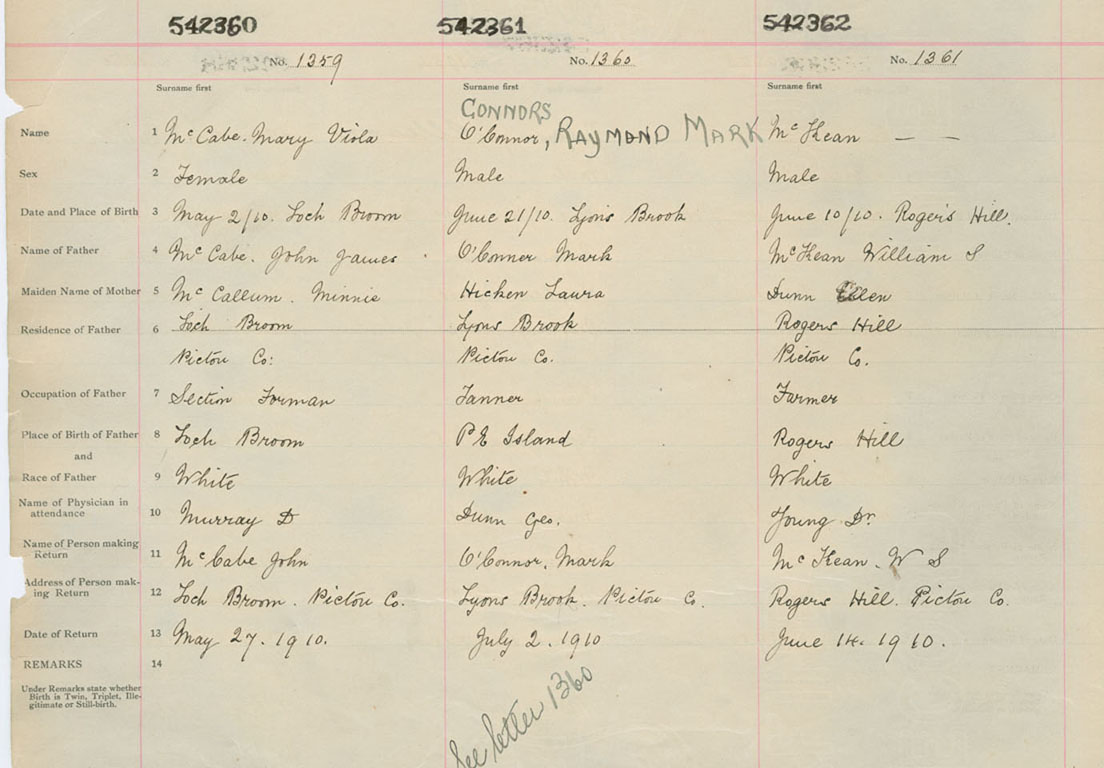 542360 542361 542362
No. 1359 No. 1360 No. 1361
Surname first Surname first Surname first
CONNORS
Name 1 Mc Cabe. Mary Viola O'Connor, RAYMOND MARK Mc Kean — —
Sex 2 Female Male Male
Date and Place of Birth 3 May 2/10. Loch Broom June 21/10. Lyons Brook June 10/10. Roger's Hill.
Name of Father 4 Mc Cabe. John James O'Conner Mark McKean William S
Maiden Name of Mother 5 Mc Callum. Minnie Hicken Laura Dunn Ellen
Residence of Father 6 Loch Broom Lyons Brook Rogers Hill
Pictou Co: Pictou Co. Pictou Co.
Occupation of Father 7 Section Forman Tanner Farmer
Place of Birth of Father 8 Loch Broom P E Island Rogers Hill
and
Race of Father 9 White White White
Name of Physician in
attendance 10 Murray D Dunn Geo. Young Dr.
Name of Person making
Return 11 McCabe John O'Connor, Mark Mc Kean. W S
Address of Person mak-
ing Return 12 Loch Broom. Pictou Co. Lyons Brook. Pictou Co. Rogers Hill. Pictou Co.
Date of Return 13 May 27. 1910. July 2. 1910 June 14. 1910.
REMARKS 14
Under Remarks state whether
Birth is Twin, Triplet, Ille-
gitimate or Still-birth.
See letter 1360